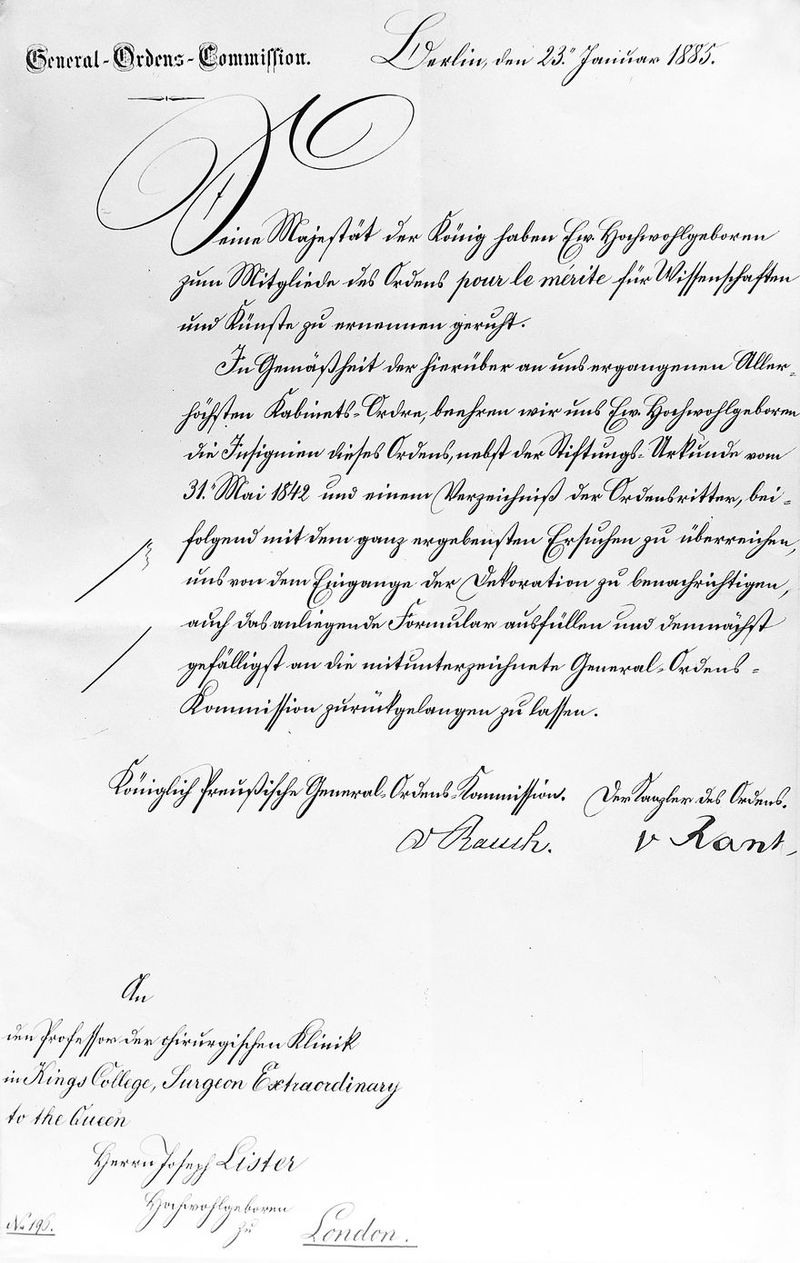 General-Ordens-Commission.
Berlin, den 23. Januar 1885.
Seine Majestät der König haben Ew. Hochwohlgeboren
zum Mitgliede des Ordens pour le mérite für Wissenschaften
und Künste zu ernennen geruht.
In Gemäßheit der hierüber an uns ergangenen Aller-
höchsten Kabinets-Ordre, beehren wir uns Ew. Hochwohlgeboren
die Insignien dieses Ordens, nebst der Stiftungs-Urkunde vom
31. Mai 1842 und einem Verzeichniß der Ordensritter, bei-
folgend mit dem ganz ergebensten Ersuchen zu überreichen,
uns von dem Eingange der Dekoration zu benachrichtigen,
auch das anliegende Formular ausfüllen und demnächst
gefälligst an die mitunterzeichnete General-Ordens-
Kommission zurückgelangen zu lassen.
Königlich Preußische General-Ordens-Kommission. Der Kanzler des Ordens.
v Rauch. v Rant
An
den Professor der chirurgischen Klinik
in Kings College, Surgeon Extraordinary
to the Queen
Herrn Joseph Lister
Hochwohlgeboren
No. 196. zu London.